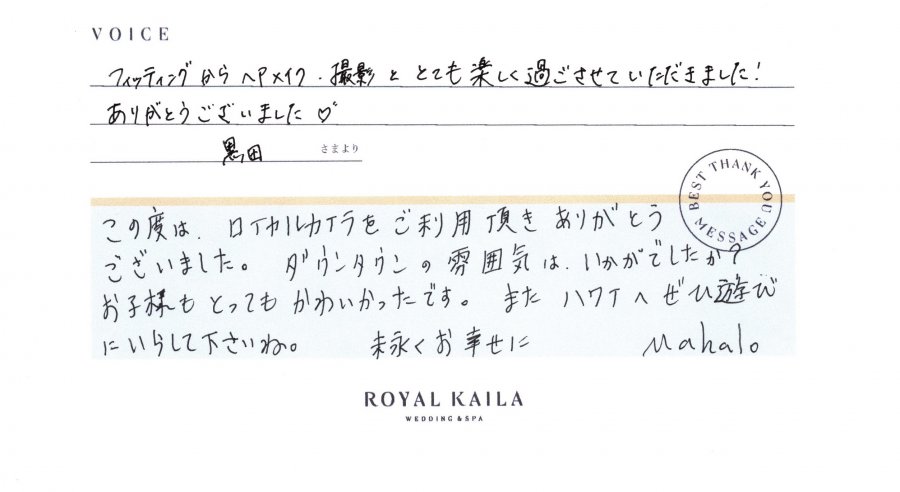 VOICE
フィッティングからヘアメイク・撮影ととても楽しく過ごさせていただきました!
ありがとうございました♡
黒田 さまより
BEST THANK YOU MESSAGE
この度は、ロイヤルカイラをご利用頂きありがとう
ございました。ダウンタウンの雰囲気は、いかがでしたか?
お子様もとってもかわいかったです。またハワイへぜひ遊び
にいらして下さいね。 末永くお幸せに Mahalo
ROYAL KAILA
WEDDING & SPA